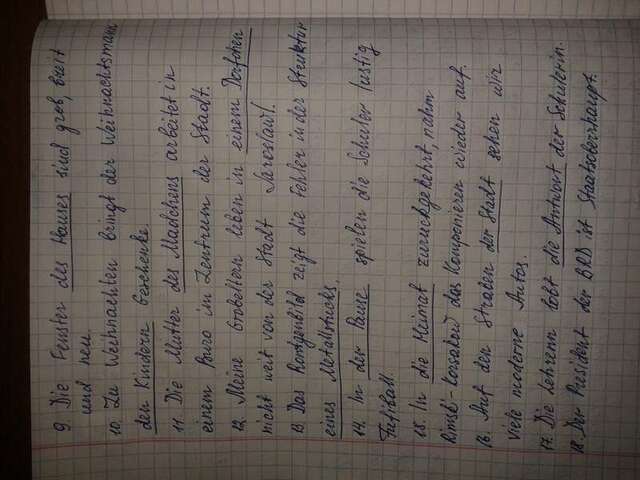 9. Die Fenster des Hauses sind groß, breit
und neu.
10. Zu Weihnachten bringt der Weihnachtsmann
den Kindern Geschenke
11. Die Mutter des Mädchens arbeitet in
einem Büro im Zentrum der Stadt.
12. Meine Großeltern leben in einem Dörfchen
nicht weit von der Stadt Jaroslawl.
13. Das Röntgenbild zeigt die Fehler in der Struktur
eines Metallstücks.
14. In der Pause spielen die Schüler lustig
Fußball
15. In die Heimat zurückgekehrt, nahm
Rimski-Korsakow das Komponieren wieder auf.
16. Auf den Straßen der Stadt sehen wir
viele moderne Autos.
17. Die Lehrerin lobt die Antwort der Schülerin.
18. Der Präsident der BRD ist Staatsoberhaupt.